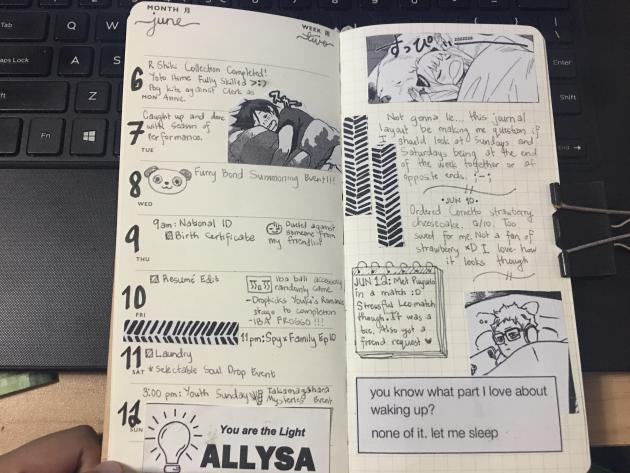 MONTH 月
june
WEEK 週
two
6
MON
R Shiki Collection Completed!
Yoto Hime Fully Skilled >:)
Play kite against Clerk as
Annie.
7
TUE
Caught up and done
with Season of
Performance.
8
WED
Furry Bond Summoning Event!!!
9
THU
9am: National ID
Birth Certificate
Dueled against
someone from
my friendlist
10
FRI
Resumé Edit
Iba ball accessory
randomly came
-Dropkicks Youka's Romance
stage to completion
-IBA FROGGO!!!
11pm: Spy x Family Ep 10
11
SAT
Laundry
* Selectable Soul Drop Event
12
SUN
3:00 pm: Youth Sunday
Takamagahara
Mysteries Event
You are the Light
ALLYSA
すっぴ
Not gonna lie... this journal
layout be making me question if
I should look at Sundays and
Saturdays being at the end
of the week together or at
opposite ends. ;-;
• JUN 10 •
Ordered Cornetto strawberry
cheesecake. 0/10. Too
sweet for me. Not a fan of
strawberry xD I love how
it looks though
JUN 12: Met
in a match :D
Stressful Leo match
though. It was a
bic. Also got a
friend request ♥
you know what part I love about
waking up?
none of it. let me sleep
Caps Lock
A
Q
Z
Alt
Shift
Ctrl
End